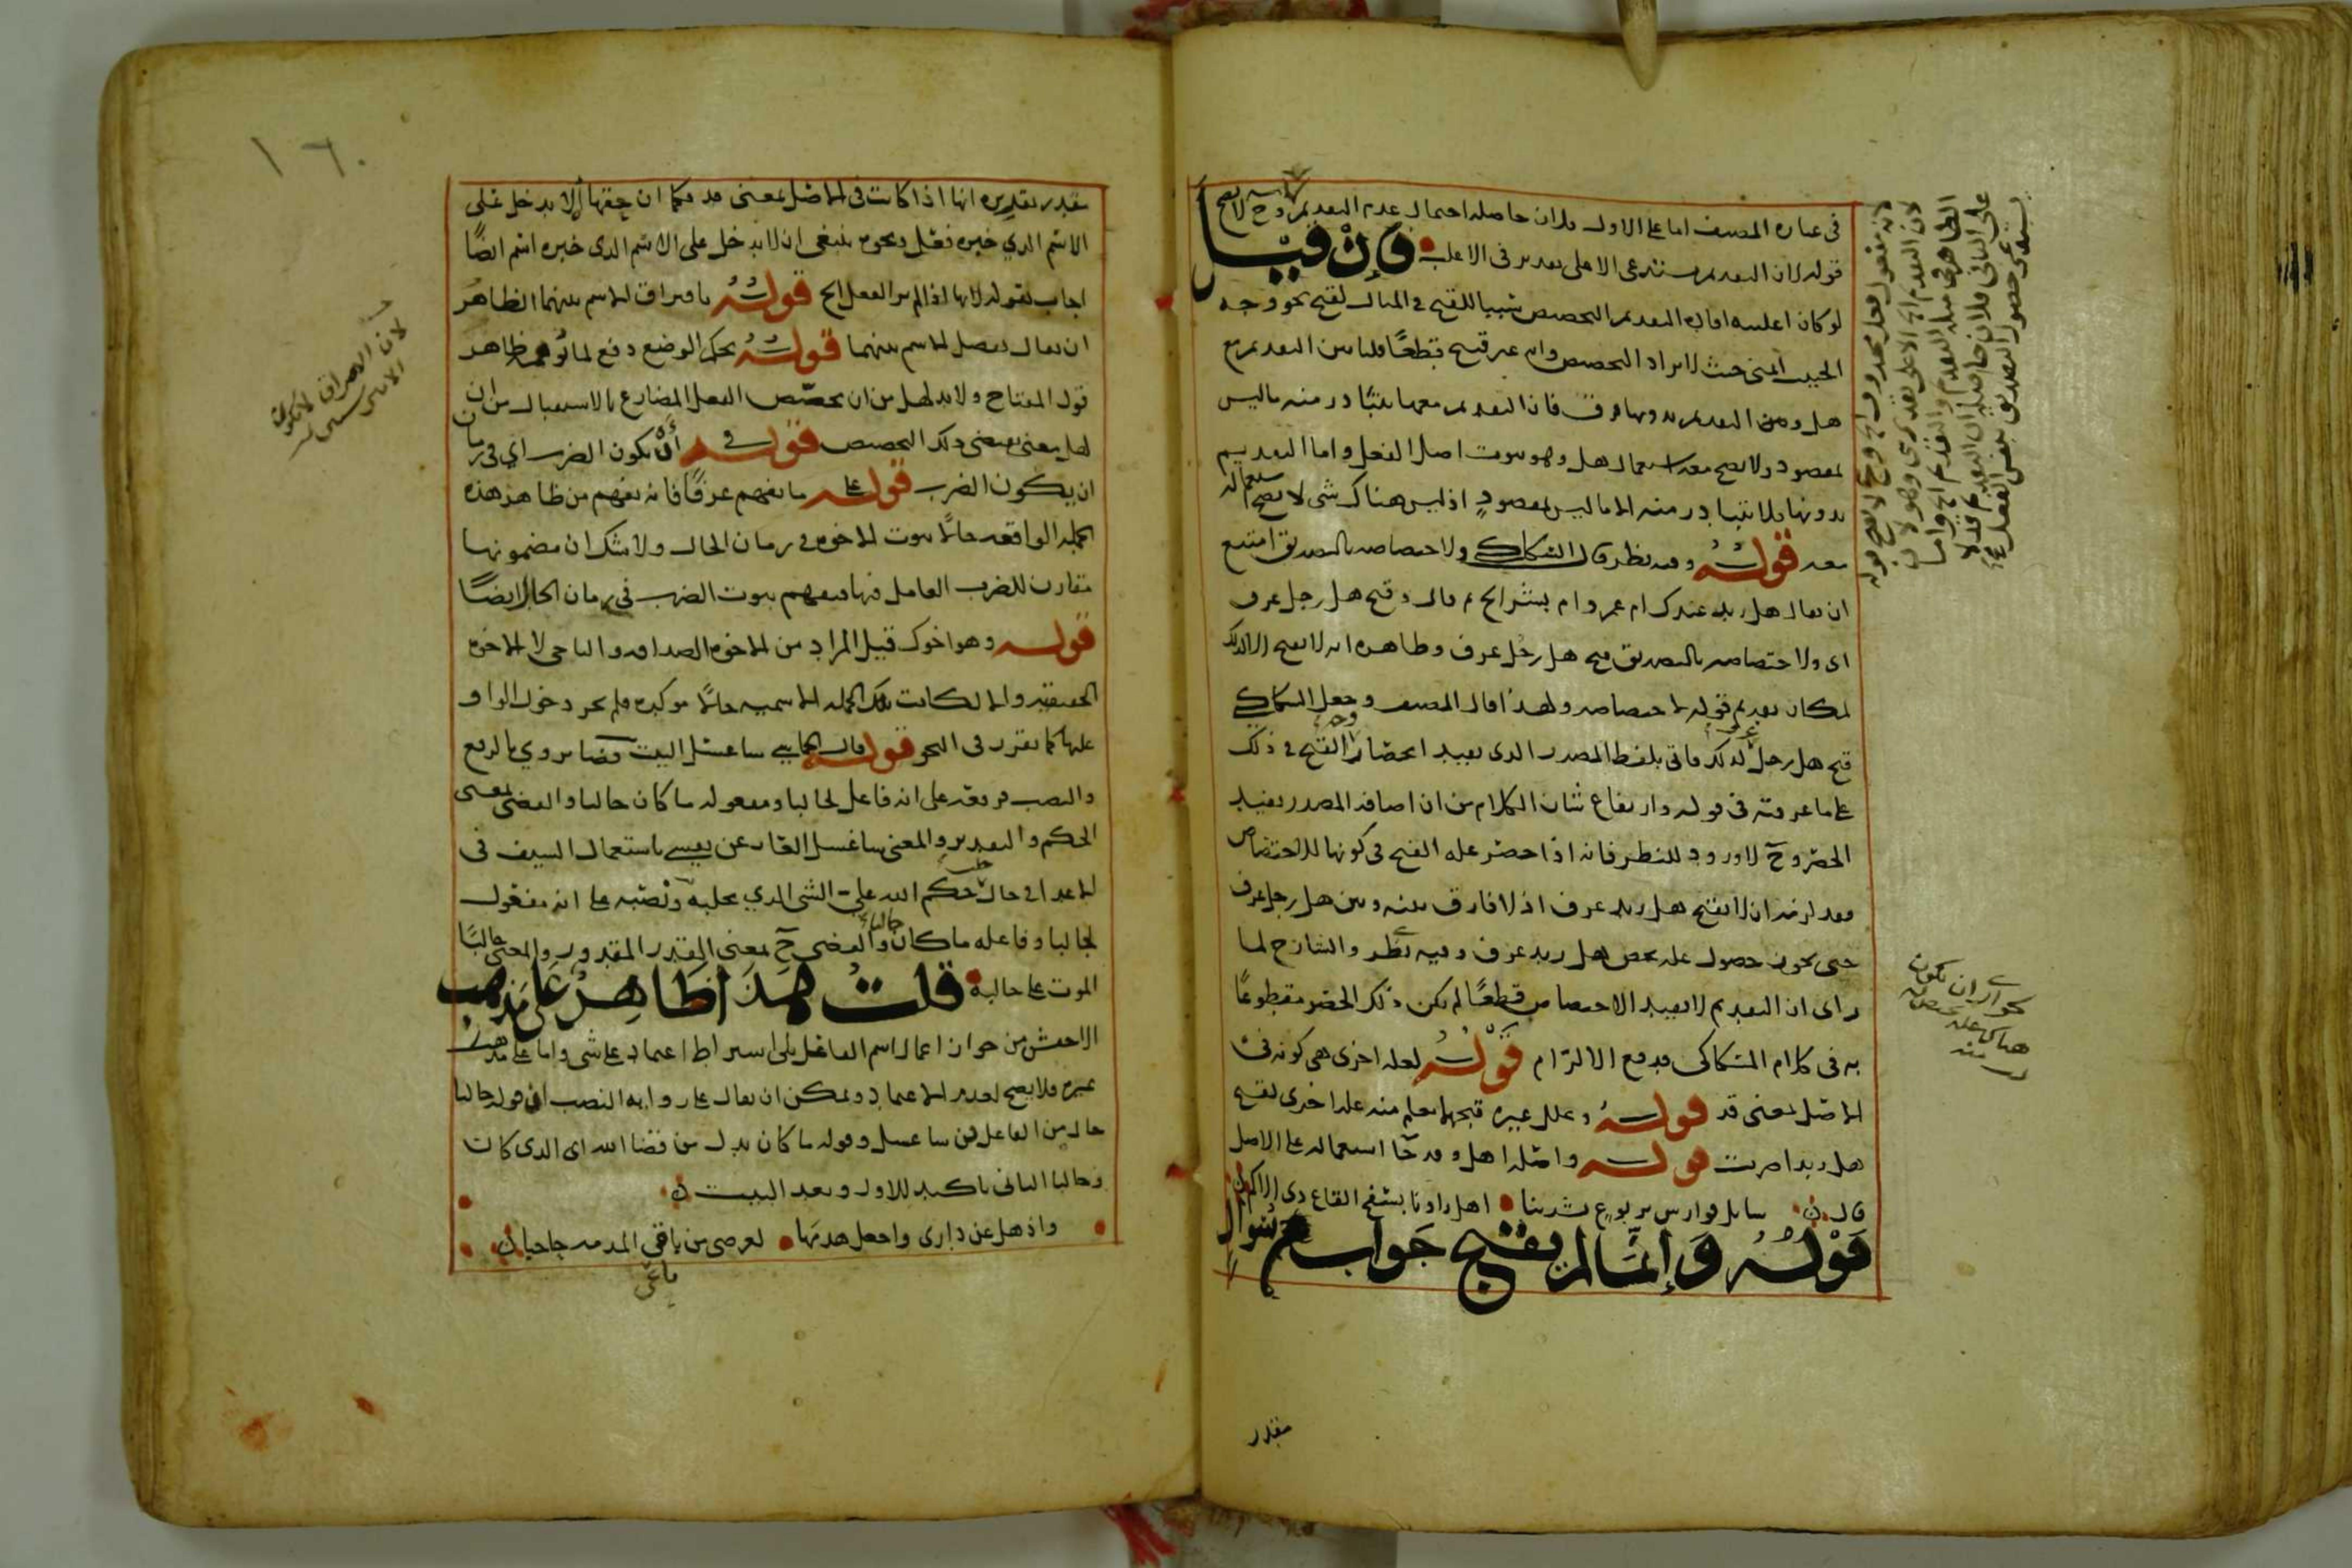 في عباره المصنف اما على الاول فلان حاصله احتمال عدم التقديم وح لا يصح
قوله لان التقديم يستدعى الاعلى تقدير في الاغلب وان قيل
لو كان اغلبيه افاده التقديم التخصيص سببا للقبح في المثال لقبح نحو وجه
الحبيب اتمنى حيث لا يراد التخصيص وانه غير قبيح قطعا قلنا بين التقديم مع
هل وبين التقديم بدونها فرق فان التقديم معها يتبادر منه ما ليس
بمقصود ولا يصح معه استعمال هل وهو ثبوت اصل الفعل واما التقديم
بدونها فلا يتبادر منه الا ما ليس بمقصود اذ ليس هناك شى لا يصح استعماله
معه قوله وفيه نظر قال السكاكي ولاختصاصه بالتصديق امتنع
ان يقال هل زيد عندك ام عمرو ام بشر الخ ثم قال وقبح هل رجل عرف
اى ولاختصاصه بالتصديق قبح هل رجل عرف وظاهره انه لا يقبح الا لذلك
لمكان تقديم قوله لاختصاصه ولهذا قال المصنف وجعل السكاكي
قبح هل رجل عرف لذلك فاتى بلفظ المصدر الذى يفيد انحصار وجه القبح في ذلك
على ما عرفته في قوله وارتفاع شان الكلام من ان اضافه المصدر يفيد
الحصر وح لا ورود للنظر فانه اذا حصر علة القبح في كونها للاختصاص
فقد لزمه ان لا يقبح هل زيد عرف اذ لا فارق بينه وبين هل رجل عرف
حتى يجوز حصول عله تخص هل زيد عرف وفيه نظر والشارح لما
راى ان التقديم لا يفيد الاختصاص قطعا لم يكن ذلك الحصر مقطوعا
به في كلام السكاكى فدفع الالزام قوله لعله اخرى هى كونه في
الاصل بمعنى قد قوله وعلل غيره قبحهما يعلم منه عله اخرى لقبح
هل زيدا ضربت قوله واصله اهل وقد جا استعماله على الاصل
قال سايل فوارس يربوع بشدتنا اهل راونا بسفح القاع ذى الاكم
قوله وانما لم يقبح جواب سؤال
مقدر
مقدر تقديره انها اذا كانت في الاصل بمعنى قد فكما ان حقها الا يدخل على
الاسم الذي خبره فعل ونحوه ينبغى ان لا يدخل على الاسم الذى خبره اسم ايضا
اجاب بقوله لانها اذا لم تر الفعل الخ قوله بافتراق الاسم بينهما الظاهر
ان يقال بفصل الاسم بينهما قوله بحكم الوضع دفع لما توهم ظاهر
قول المفتاح ولا بد لهل من ان يخصص الفعل المضارع بالاستقبال من ان
لهل معنى يقتضى ذلك التخصيص قوله في ان يكون الضرب اي في زمان
ان يكون الضرب قوله على ما يفهم عرفا فانه يفهم من ظاهر هذه
الجمله الواقعه حالا ثبوت الاخوه في زمان الحال ولا شك ان مضمونها
مقارن للضرب العامل فيها فيفهم ثبوت الضرب في زمان الحال ايضا
قوله وهو اخوك قيل المراد من الاخوه الصداقه والتاخى لا الاخوه
الحقيقيه والا لكانت تلك الجمله الاسميه حالا موكده فلم يجز دخول الواو
عليها كما تقرر في النحو قوله قال الحماسي ساغسل البيت قضا يروي بالرفع
والنصب فرفعه على انه فاعل لجالبا ومفعوله ما كان جالبا والقضى بمعنى
الحكم والتقدير والمعنى ساغسل العار عن نفسي باستعمال السيف في
الاعدا في حال جلب حكم الله على الشى الذي يجلبه ونصبه على انه مفعول
لجالبا وفاعله ما كان جالبا والقضى ح بمعنى القدر المقدور والمعنى جالبا
الموت على جالبه قلت هذا ظاهر على مذهب
الاخفش من جواز اعمال اسم الفاعل بلى اشتراط اعتماد على شى واما على مذهب
غيره فلا يصح لعدم الاعتماد ويمكن ان يقال على روايه النصب ان قوله جالبا
حال من الفاعل في ساغسل وقوله ما كان بدل من قضا الله اى الذى كان
وجالبا الثانى تاكيد للاول وبعد البيت
واذهل عن دارى واجعل هدمها لعرضى من باقى المذمه حاجبا